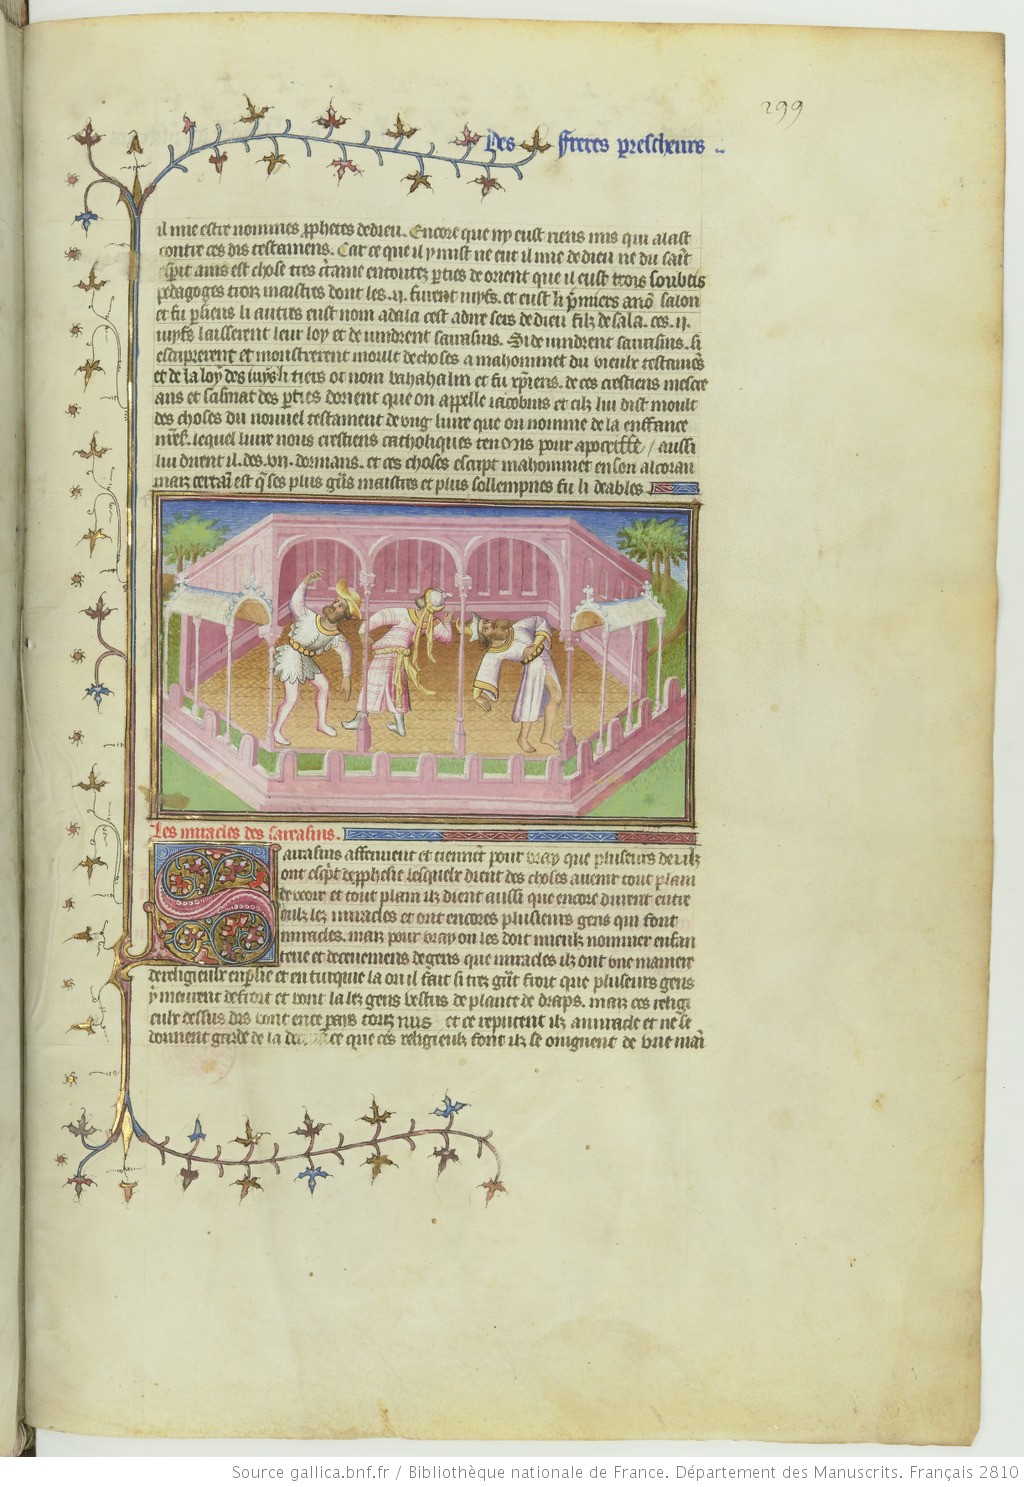 299
Des Freres prescheurs ..
il mie estre nommes ꝓphetes de dieu. Encore que ny eust riens mis qui alast
contre ces dis testamens. Car ce que il y mist ne eut il mie de dieu ne du saīt
esp̄it ains est chose tres c̄taine en toutez ꝑties de orient que il eust trois soubtis
pedagoges troiz maistres dont les .ij. furent iuyfs. et eust li p̄miers anō salon
et fu ꝑsiens li autres eust nom adala cest adire sers de dieu filz de sala. ces .ij.
iuyfs laisserent leur loy et de vindrent sarrasins. Si de vindrent sarrasins. si
escriprerent et monstrerent moult de choses a mahommet du vieulx testamēt
et de la loy des iuyfs li tiers ot nom bahahalin et fu xp̄iens. de ces crestiens
ans et des ꝑties dorient que on appelle iacobins et cilz lui dist moult
des choses du nouuel testament de vng liure que on nomme de la enffance
lequel liure nous crestiens catholiques tenons pour / aussi
lui dirent il. des .vii. dormans. et ces choses escript mahommet en son alcoran
maiz certaī est q̄ ses plus g̃ns maistres et plus sollempnes fu li deables
Les miracles des sarrasins.
Sarrasins afferment et tiennēt pour vray que pluseurs de eulz
ont esp̄it de ꝓphesie lesquelx dient des choses auenir tout plain
de veoir et tout plain ilz dient aussi que encore durent entre
eulz lez miracles et ont encores plusieurs gens qui font
miracles. maiz pour vray on les doit mieulz nommer enfan
terie et deceuemens de gens que miracles ilz ont vne maniere
de religieulx en ꝑsie et en turquie la ou il fait si tres g̃nt froit que pluseurs gens
y meurent de froit et vont la lez gens vestus de plante de draps. maiz ces religi
eulx dessus dis vont en ce pays touz nus et ce reputent ilz a miracle et ne se
donnent garde de la ce que ces religieulz font ilz se oingnent de vne
Source gallica.bnf.fr / Bibliothèque nationale de France. Département des Manuscrits. Français 2810